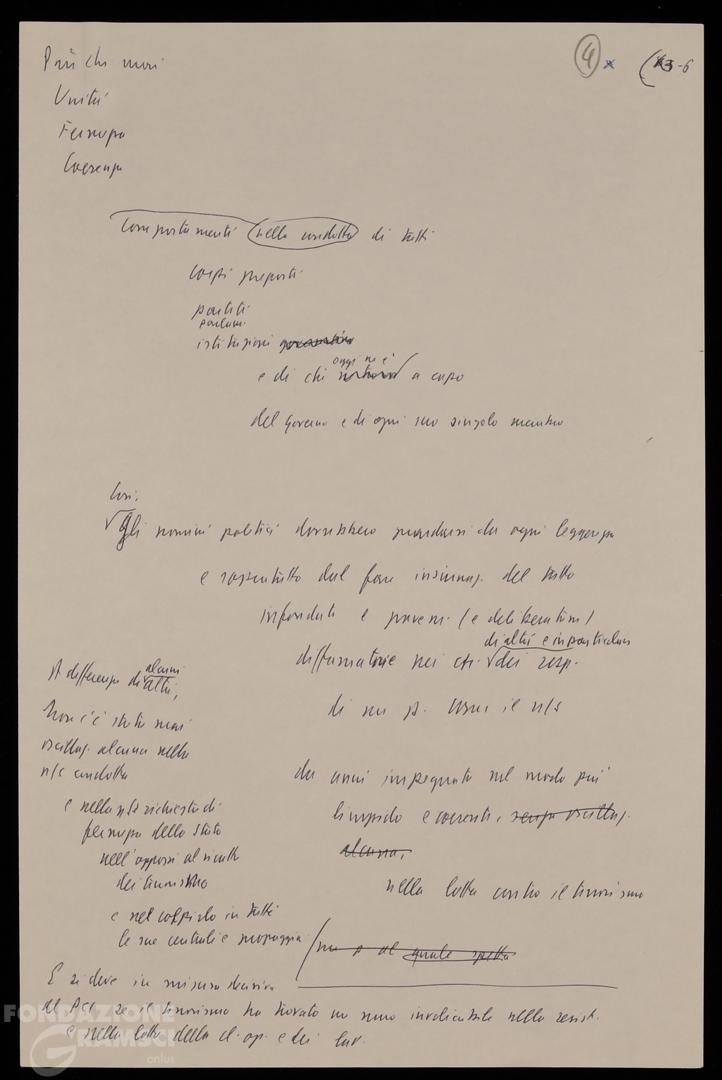 Più che mai
4
3-6
Unità
Fermezza
Coerenza
comportamenti nella condotta di tutti
corpi preposti
partiti
parlam.
istituzioni
oggi ne è
e di chi a capo
del governo e di ogni suo singolo membro
Così,
gli uomini politici dovrebbero guardarsi da ogni leggerezza
e soprattutto dal fare insinuaz. del tutto
infondate e (e deliberatam)
di altri e in particolare
diffamatorie nei cfr. dei resp.
di un p. come il n/s
da anni impegnato nel modo più
limpido e coerente, senza oscillaz.
alcuna,
nella lotta contro il terrorismo
A differenza di altri,
alcuni
non c'è stata mai
oscillaz. alcuna nella
n/s condotta
e nella n/s richiesta di
fermezza dello Stato
nell'opporsi al ricatto
del terrorismo
e nel colpirlo in tutte
le sue centrali e propaggini
ma a al quale spetta
E si deve in misura decisiva
al PCI se il terrorismo ha trovato un muro invalicabile nella resist.
e nella lotta della cl. op. e dei lav.
FONDAZIONE
GRAMSCI
onlus